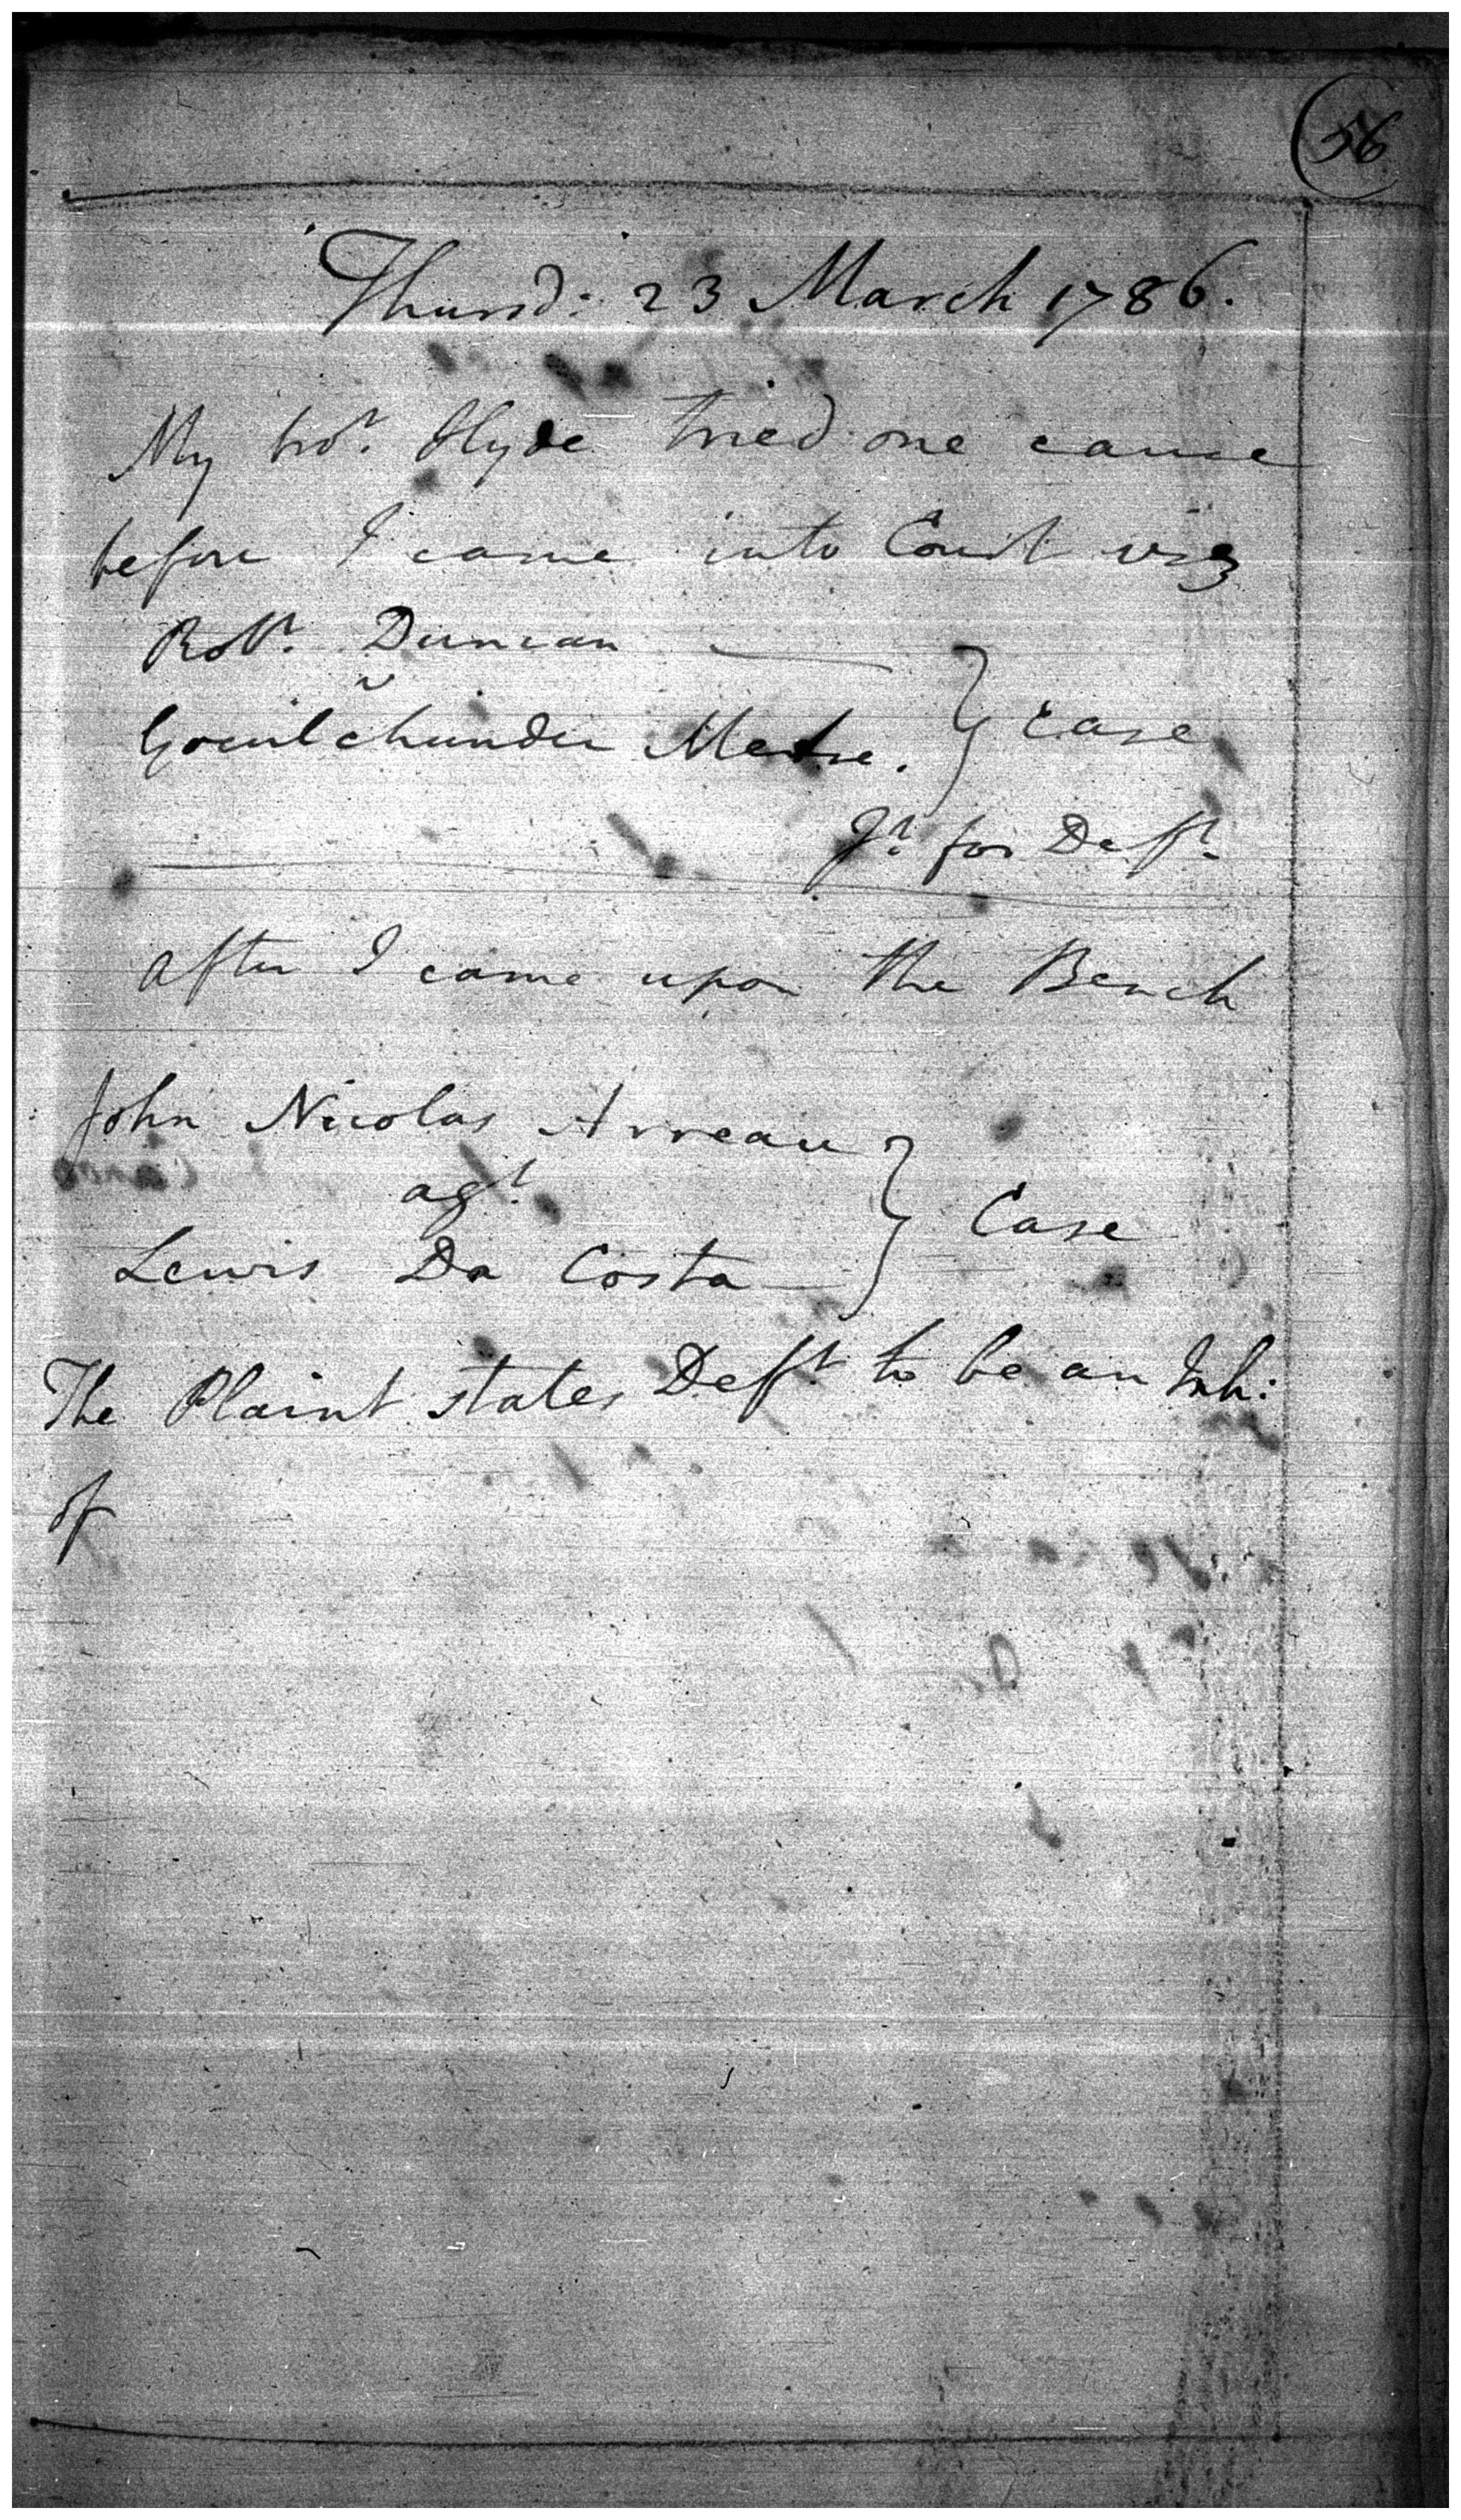 56
Thursd: 23 March 1786.
My bror. Hyde tried one cause
before I came into Court viz
Robt. Duncan
v
Gocul chunder } Case
Jt. for Deft.
after I came upon the Bench
John Nicolas Arreau
agt. } Case
Lewis Da Costa
The Plaint states Deft to be an Inh:
of